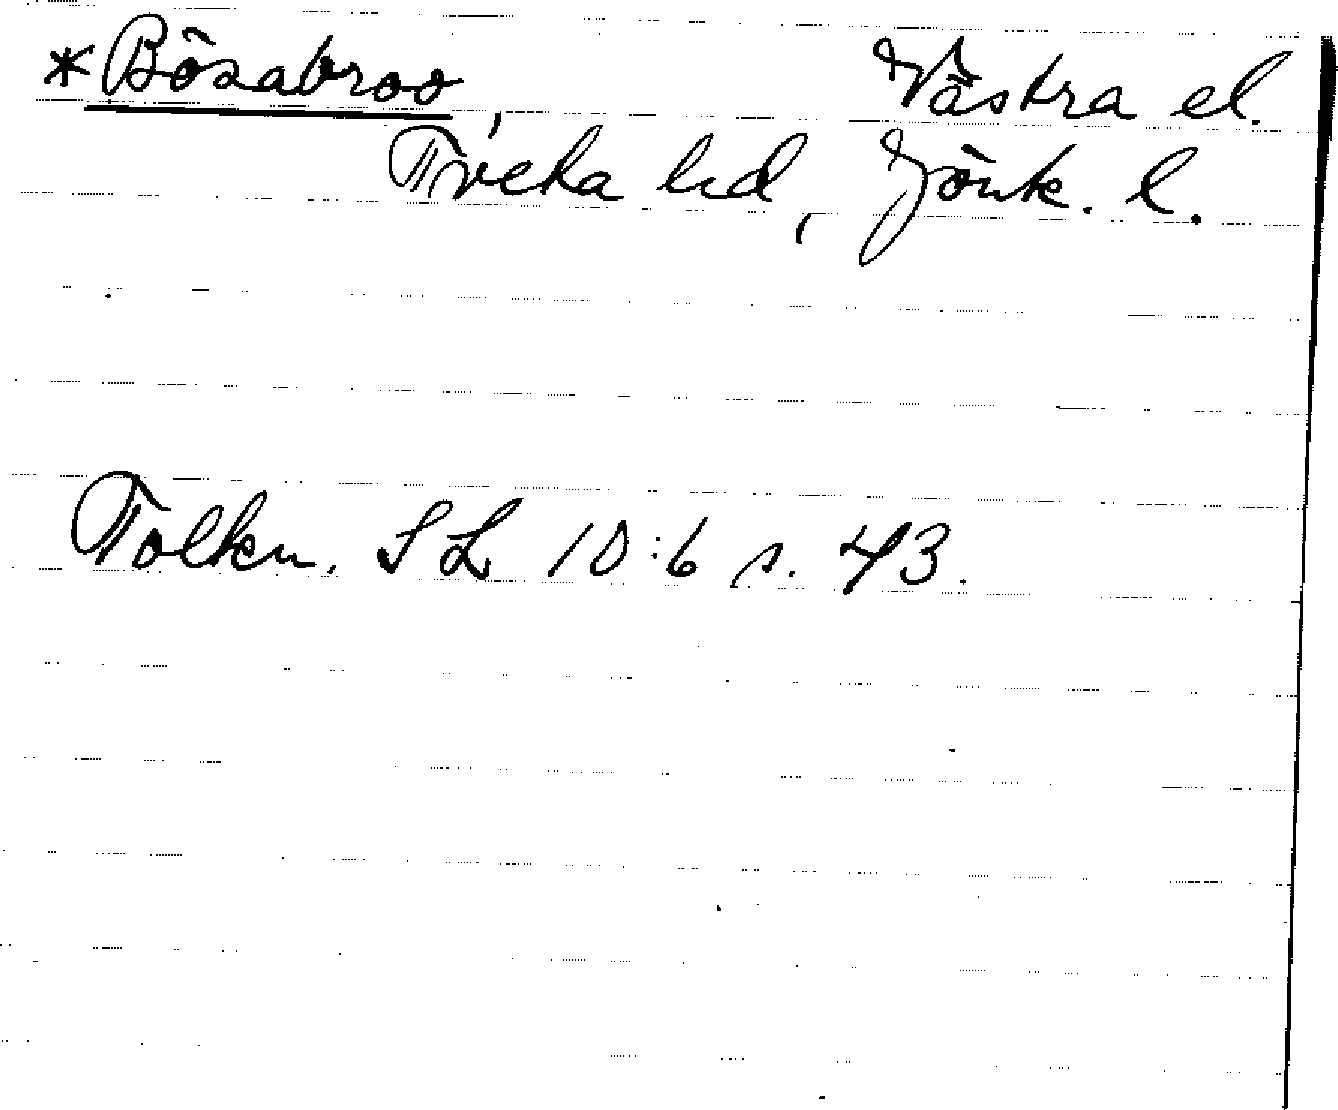 *Bösabroo, Västra el.
Tveta hd, Jönk. l.
Tolkn. SL 10:6 s. 43.